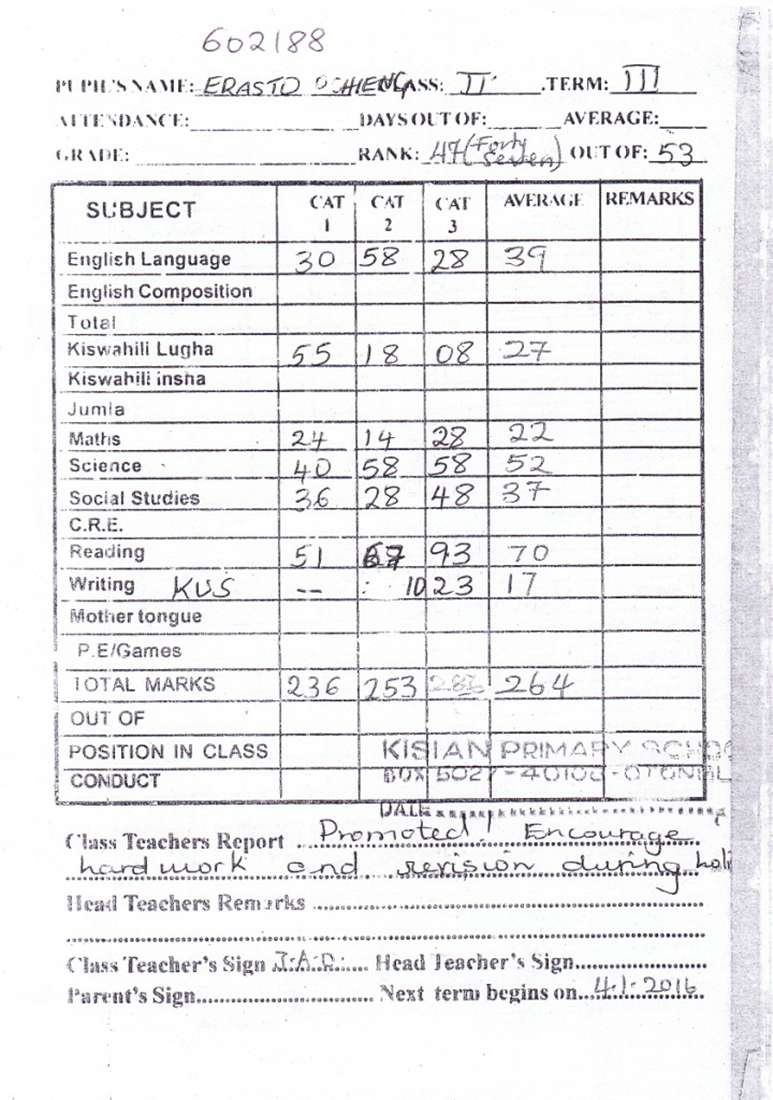 602188
PUPIL'S NAME: ERASTO OCHIENG CLASS: II . TERM: III
ATTENDANCE: DAYS OUT OF: AVERAGE:
GRADE: RANK: 47 (Forty Seven) OUT OF: 53
SUBJECT CAT 1 CAT 2 CAT 3 AVERAGE REMARKS
English Language 30 58 28 39
English Composition
Total
Kiswahili Lugha 55 18 08 27
Kiswahili insha
Jumla
Maths 24 14 28 22
Science 40 58 58 52
Social Studies 36 28 48 37
C.R.E.
Reading 51 67 93 70
Writing KUS -- 10 23 17
Mother tongue
P.E/Games
TOTAL MARKS 236 253 264
OUT OF
POSITION IN CLASS KISIAN PRIMARY SCHOO
CONDUCT BOX 5027 - 40100 -
DATE
Class Teachers Report Promoted! Encourage
hard work and revision during holi
Head Teachers Remarks
Class Teacher's Sign J.A.O. Head Teacher's Sign
Parent's Sign Next term begins on 4.1.2016